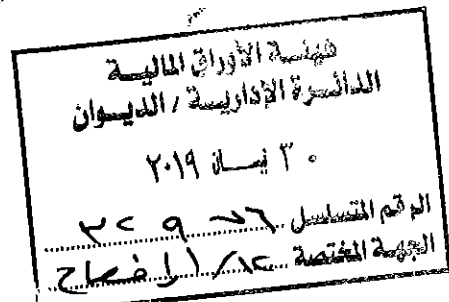 هيئة الأوراق المالية
الدائرة الإدارية / الديوان
٣٠ نيسان ٢٠١٩
الرقم المتسلسل
الجهة المختصة الإفصاح